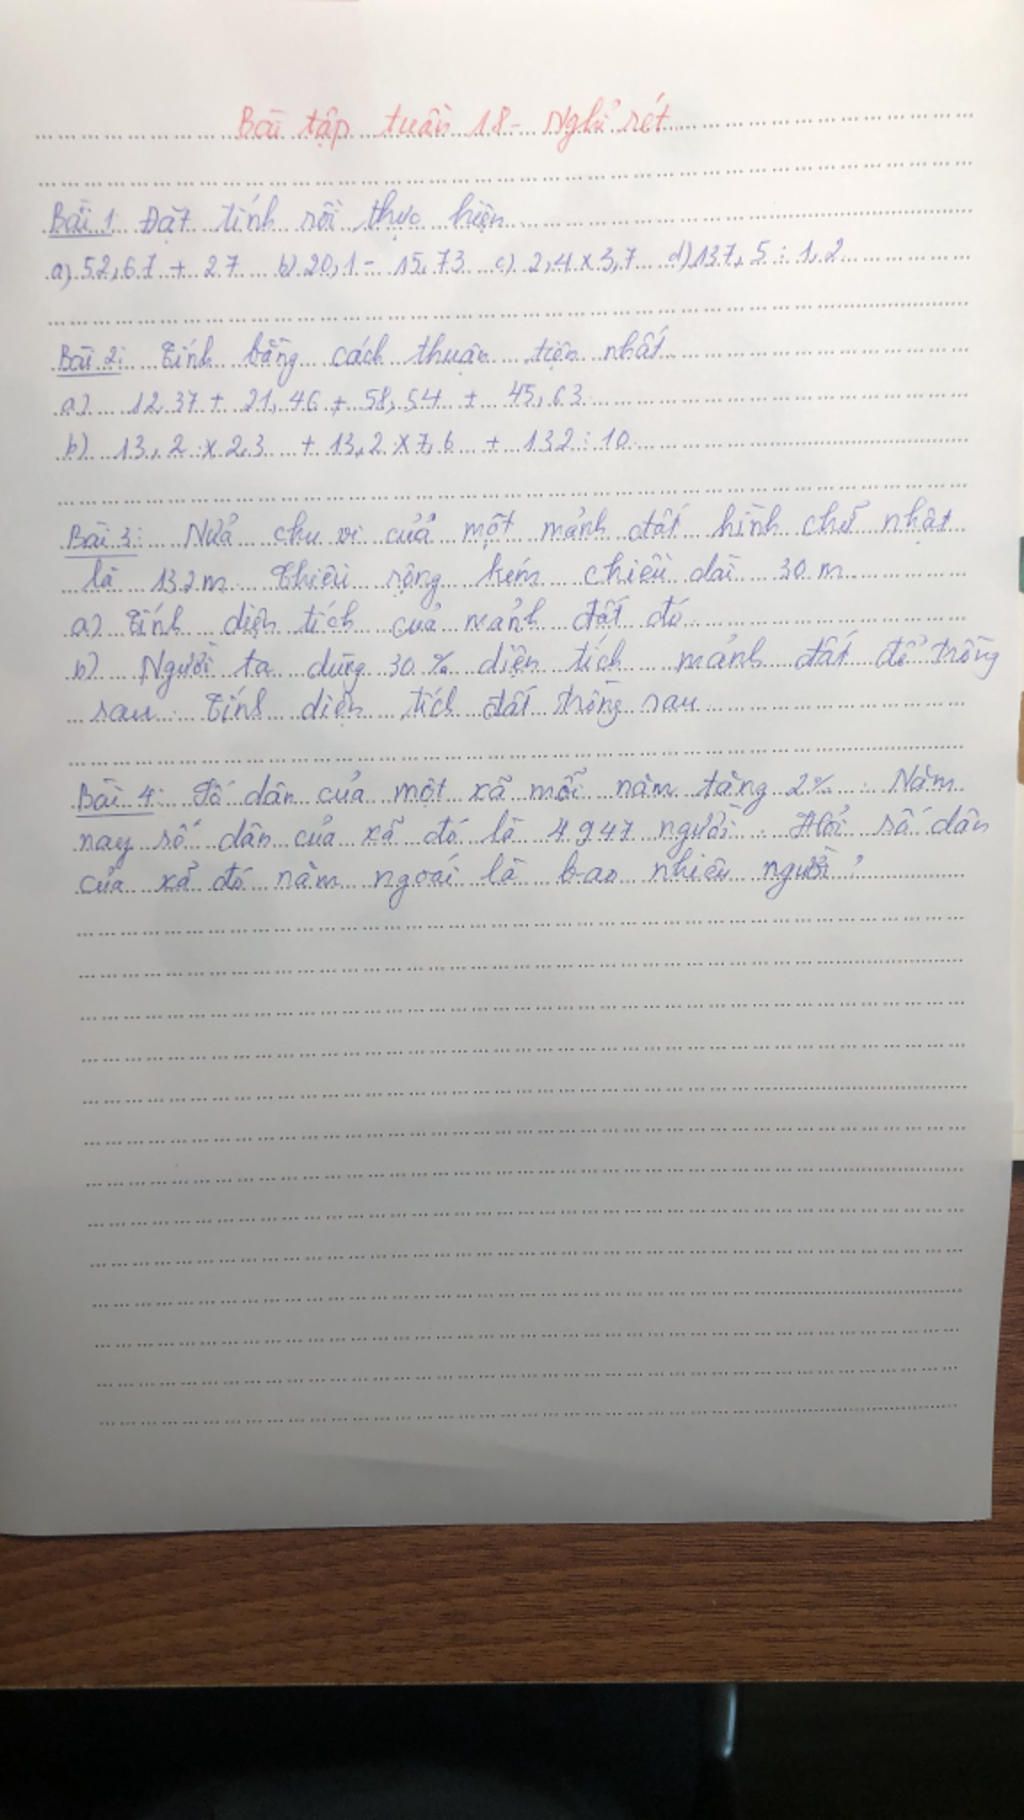 Bài tập tuần 18 - Nghỉ rét
Bài 1: Đặt tính rồi thực hiện
a) 52,67 + 27 b) 20,1 - 15,73 c) 2,4 x 3,7 d) 137,5 : 1,2
Bài 2: Tính bằng cách thuận tiện nhất
a) 12,37 + 21,46 + 58,54 + 45,63
b) 13,2 x 2,3 + 13,2 x 7,6 + 132 : 10
Bài 3: Nửa chu vi của một mảnh đất hình chữ nhật
là 132m. Chiều rộng kém chiều dài 30 m
a) Tính diện tích của mảnh đất đó
b) Người ta dùng 30% diện tích mảnh đất để trồng
rau. Tính diện tích đất trồng rau
Bài 4: Số dân của một xã mỗi năm tăng 2%. Năm
nay số dân của xã đó là 4947 người. Hỏi số dân
của xã đó năm ngoái là bao nhiêu người?